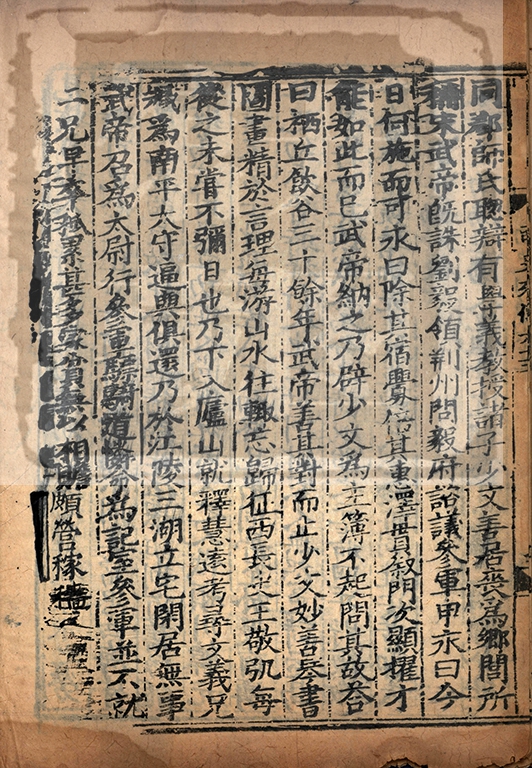 同郡師氏聰辯有學義教授諸子少文善居喪爲鄉閭所
稱宋武帝既誅劉毅領荊州問毅府諮議參軍申永曰今
日何施而可永曰除其宿舋倍其惠澤貫叙門次顯擢才
能如此而已武帝納之乃辟少文爲主簿不起問其故荅
曰栖丘飲谷三十餘年武帝善其對而止少文妙善琴書
圖畫精於言理每游山水往輒忘歸征西長史王敬弘每
從之未嘗不彌日也乃下入廬山就釋慧遠考尋文義兄
臧爲南平太守逼與俱還乃於江陵三湖立宅閑居無事
武帝召爲太尉行參軍驃騎道憐命爲記室參軍並不就
二兄早卒孤累甚多家貧無以相贍頗營稼穡